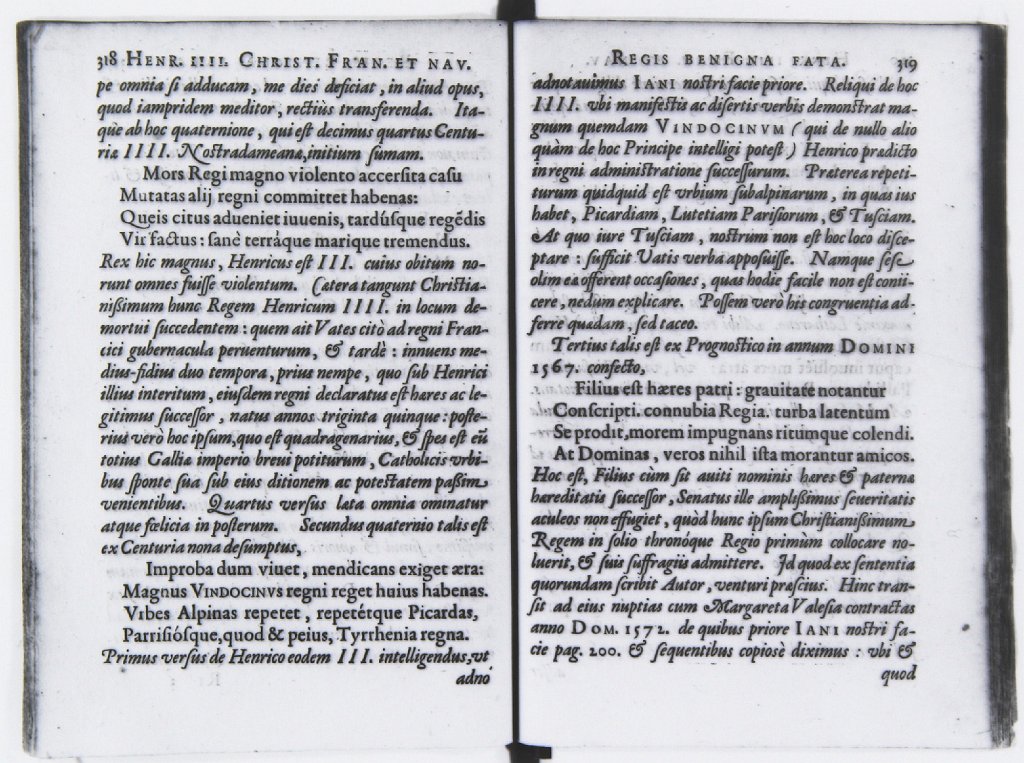 318 HENR. IIII. CHRIST. FRAN. ET NAV.
pe omnia si adducam, me dies deficiat, in aliud opus,
quod iampridem meditor, rectiùs transferenda. Ita-
que ab hoc quaternione, qui est decimus quartus Centu-
riæ IIII. Nostradameanæ, initium sumam.
Mors Regi magno violento accersita casu
Mutatas alij regni committet habenas:
Queis citus adueniet iuuenis, tardúsque regédis
Vir factus: sanè terráque marique tremendus.
Rex hic magnus, Henricus est III. cuius obitum no-
runt omnes fuisse violentum. Cætera tangunt Christia-
nißimum hunc Regem Henricum IIII. in locum de-
mortui succedentem: quem ait Vates citò ad regni Fran-
cici gubernacula peruenturum, & tardè: innuens me-
dius-fidius duo tempora, prius nempe, quo sub Henrici
illius interitum, eiusdem regni declaratus est hæres ac le-
gitimus successor, natus annos triginta quinque: poste-
rius verò hoc ipsum, quo est quadragenarius, & spes est eũ
totius Galliæ imperio breui potiturum, Catholicis vrbi-
bus sponte sua sub eius ditionem ac potestatem paßim
venientibus. Quartus versus læta omnia ominatur
atque fœlicia in posterum. Secundus quaternio talis est
ex Centuria nona desumptus,
Improba dum viuet, mendicans exiget æra:
Magnus VINDOCINVS regni reget huius habenas.
Vrbes Alpinas repetet, repetétque Picardas,
Parrisiósque, quod & peius, Tyrrhenia regna.
Primus versus de Henrico eodem III. intelligendus, vt
adno
REGIS BENIGNA FATA. 319
adnotauimus IANI nostri facie priore. Reliqui de hoc
IIII. vbi manifestis ac disertis verbis demonstrat ma-
gnum quemdam VINDOCINVM (qui de nullo alio
quàm de hoc Principe intelligi potest) Henrico prædicto
in regni administratione successurum. Præterea repeti-
turum quidquid est vrbium subalpinarum, in quas ius
habet, Picardiam, Lutetiam Parisiorum, & Tusciam.
At quo iure Tusciam, nostrum non est hoc loco disce-
ptare: sufficit Vatis verba apposuisse. Namque sese
olim eæ offerent occasiones, quas hodie facile non est conii-
cere, nedum explicare. Possem verò his congruentia ad-
ferre quædam, sed taceo.
Tertius talis est ex Prognostico in annum DOMINI
1567. confecto,
Filius est hæres patri: grauitate notantur
Conscripti. connubia Regia. turba latentùm
Se prodit, morem impugnans ritumque colendi.
At Dominas, veros nihil ista morantur amicos.
Hoc est, Filius cùm sit auiti nominis hæres & paternæ
hæreditatis successor, Senatus ille amplißimus seueritatis
aculeos non effugiet, quòd hunc ipsum Christianißimum
Regem in solio thronóque Regio primùm collocare no-
luerit, & suis suffragiis admittere. Id quod ex sententia
quorundam scribit Autor, venturi præscius. Hinc tran-
sit ad eius nuptias cum Margareta Valesia contractas
anno DOM. 1572. de quibus priore IANI nostri fa-
cie pag. 200. & sequentibus copiosè diximus: vbi &
quod